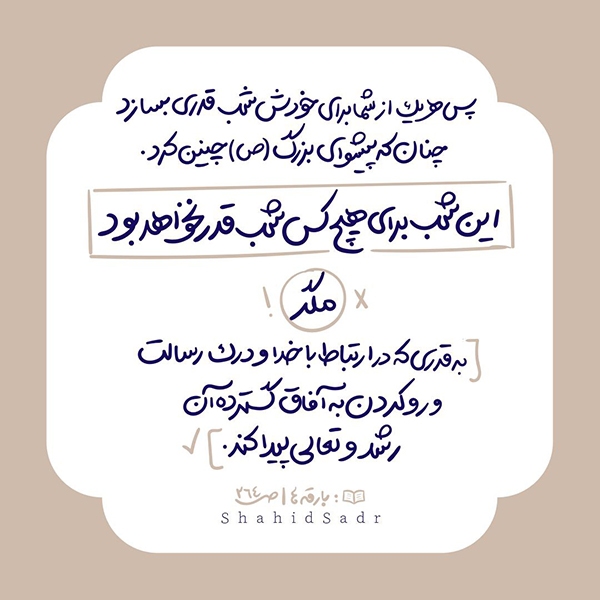 پس هر یک از شما برای خودش شب قدری بسازد
چنان که پیشوای بزرگ (ص) چنین کرد.
این شب برای هیچ کس شب قدر نخواهد بود
! مگر x
[به قدری که در ارتباط با خدا و درک رسالت
و رو کردن به آفاق گسترده آن
رشد و تعالی پیدا کند.] ✓
: بارقه ٤ | ص ٢٦٤
ShahidSadr